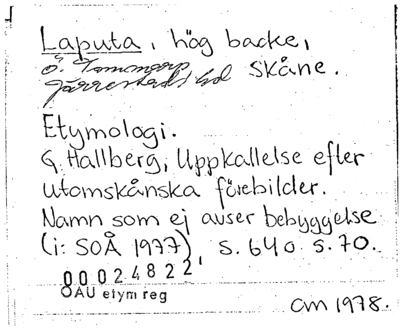 Laputa, hög backe,
Ö. Tommarp
Järrestads hd Skåne.
Etymologi.
G. Hallberg, Uppkallelse efter
utomskånska förebilder.
Namn som ej avser bebyggelse
(i: SOÅ 1977), s. 64o s. 70.
00024822
OAU etym reg
am 1978.